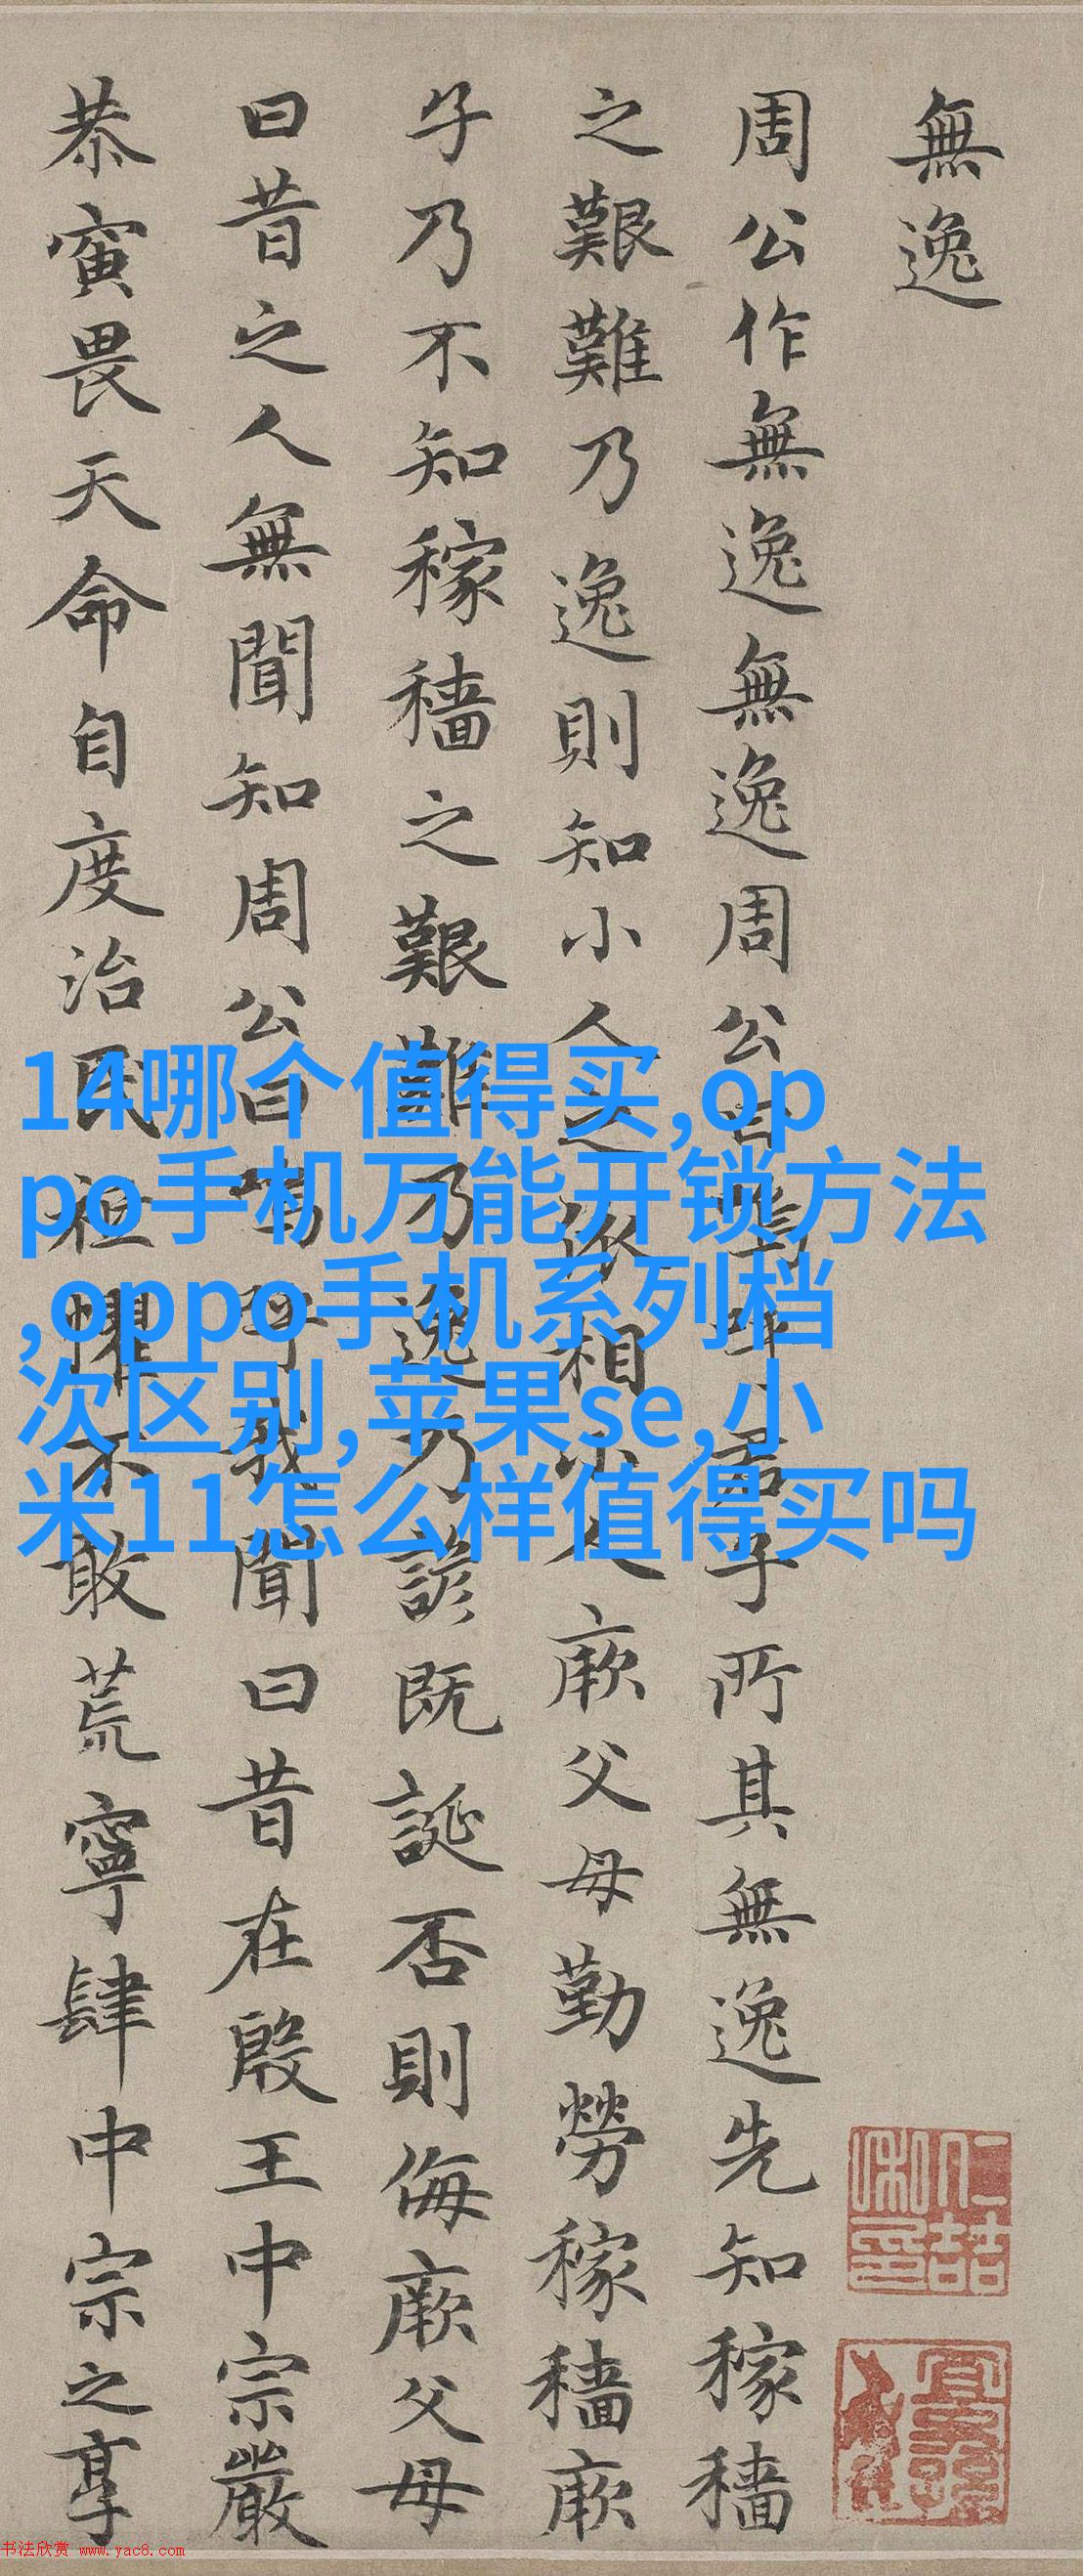 無逸
周公作無逸無逸周公曰嗚呼君子所其無逸先知稼穡
之艱難乃逸則知小人之依相小人厥父母勤勞稼穡厥
子乃不知稼穡之艱難乃逸乃諺既誕否則侮厥父母
曰昔之人無聞知周公曰嗚呼我聞曰昔在殷王中宗嚴
恭寅畏天命自度治民祗懼不敢荒寧肆中宗之享
14哪个值得买,op
po手机万能开锁方法
,oppo手机系列档
次区别,苹果se,小
米11怎么样值得买吗
书法欣赏 www.yac8.com